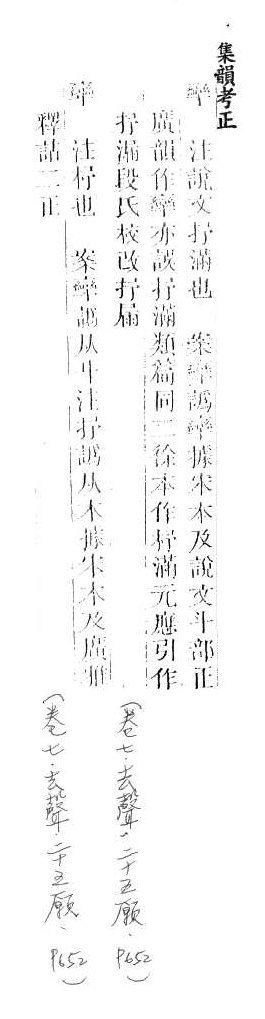 集韻考正
注說文抒滿也　案　譌　據宋本及說文斗部正
廣韻作　亦誤抒滿類篇同二徐本作杼滿元應引作
抒漏段氏校改抒屚
注杼也　案　譌从牛注抒譌从木據宋本及廣雅
釋詁二正
（卷七·去聲·二十五願·P652）
（卷七·去聲·二十五願·P652）